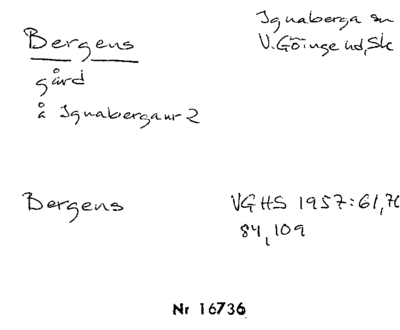 Bergens
gård
å Ignaberganr 2
Ignaberga sn
V.Göinge hd, Sk
Bergens
VGHS 1957:61,70
84,109
Nr 16736